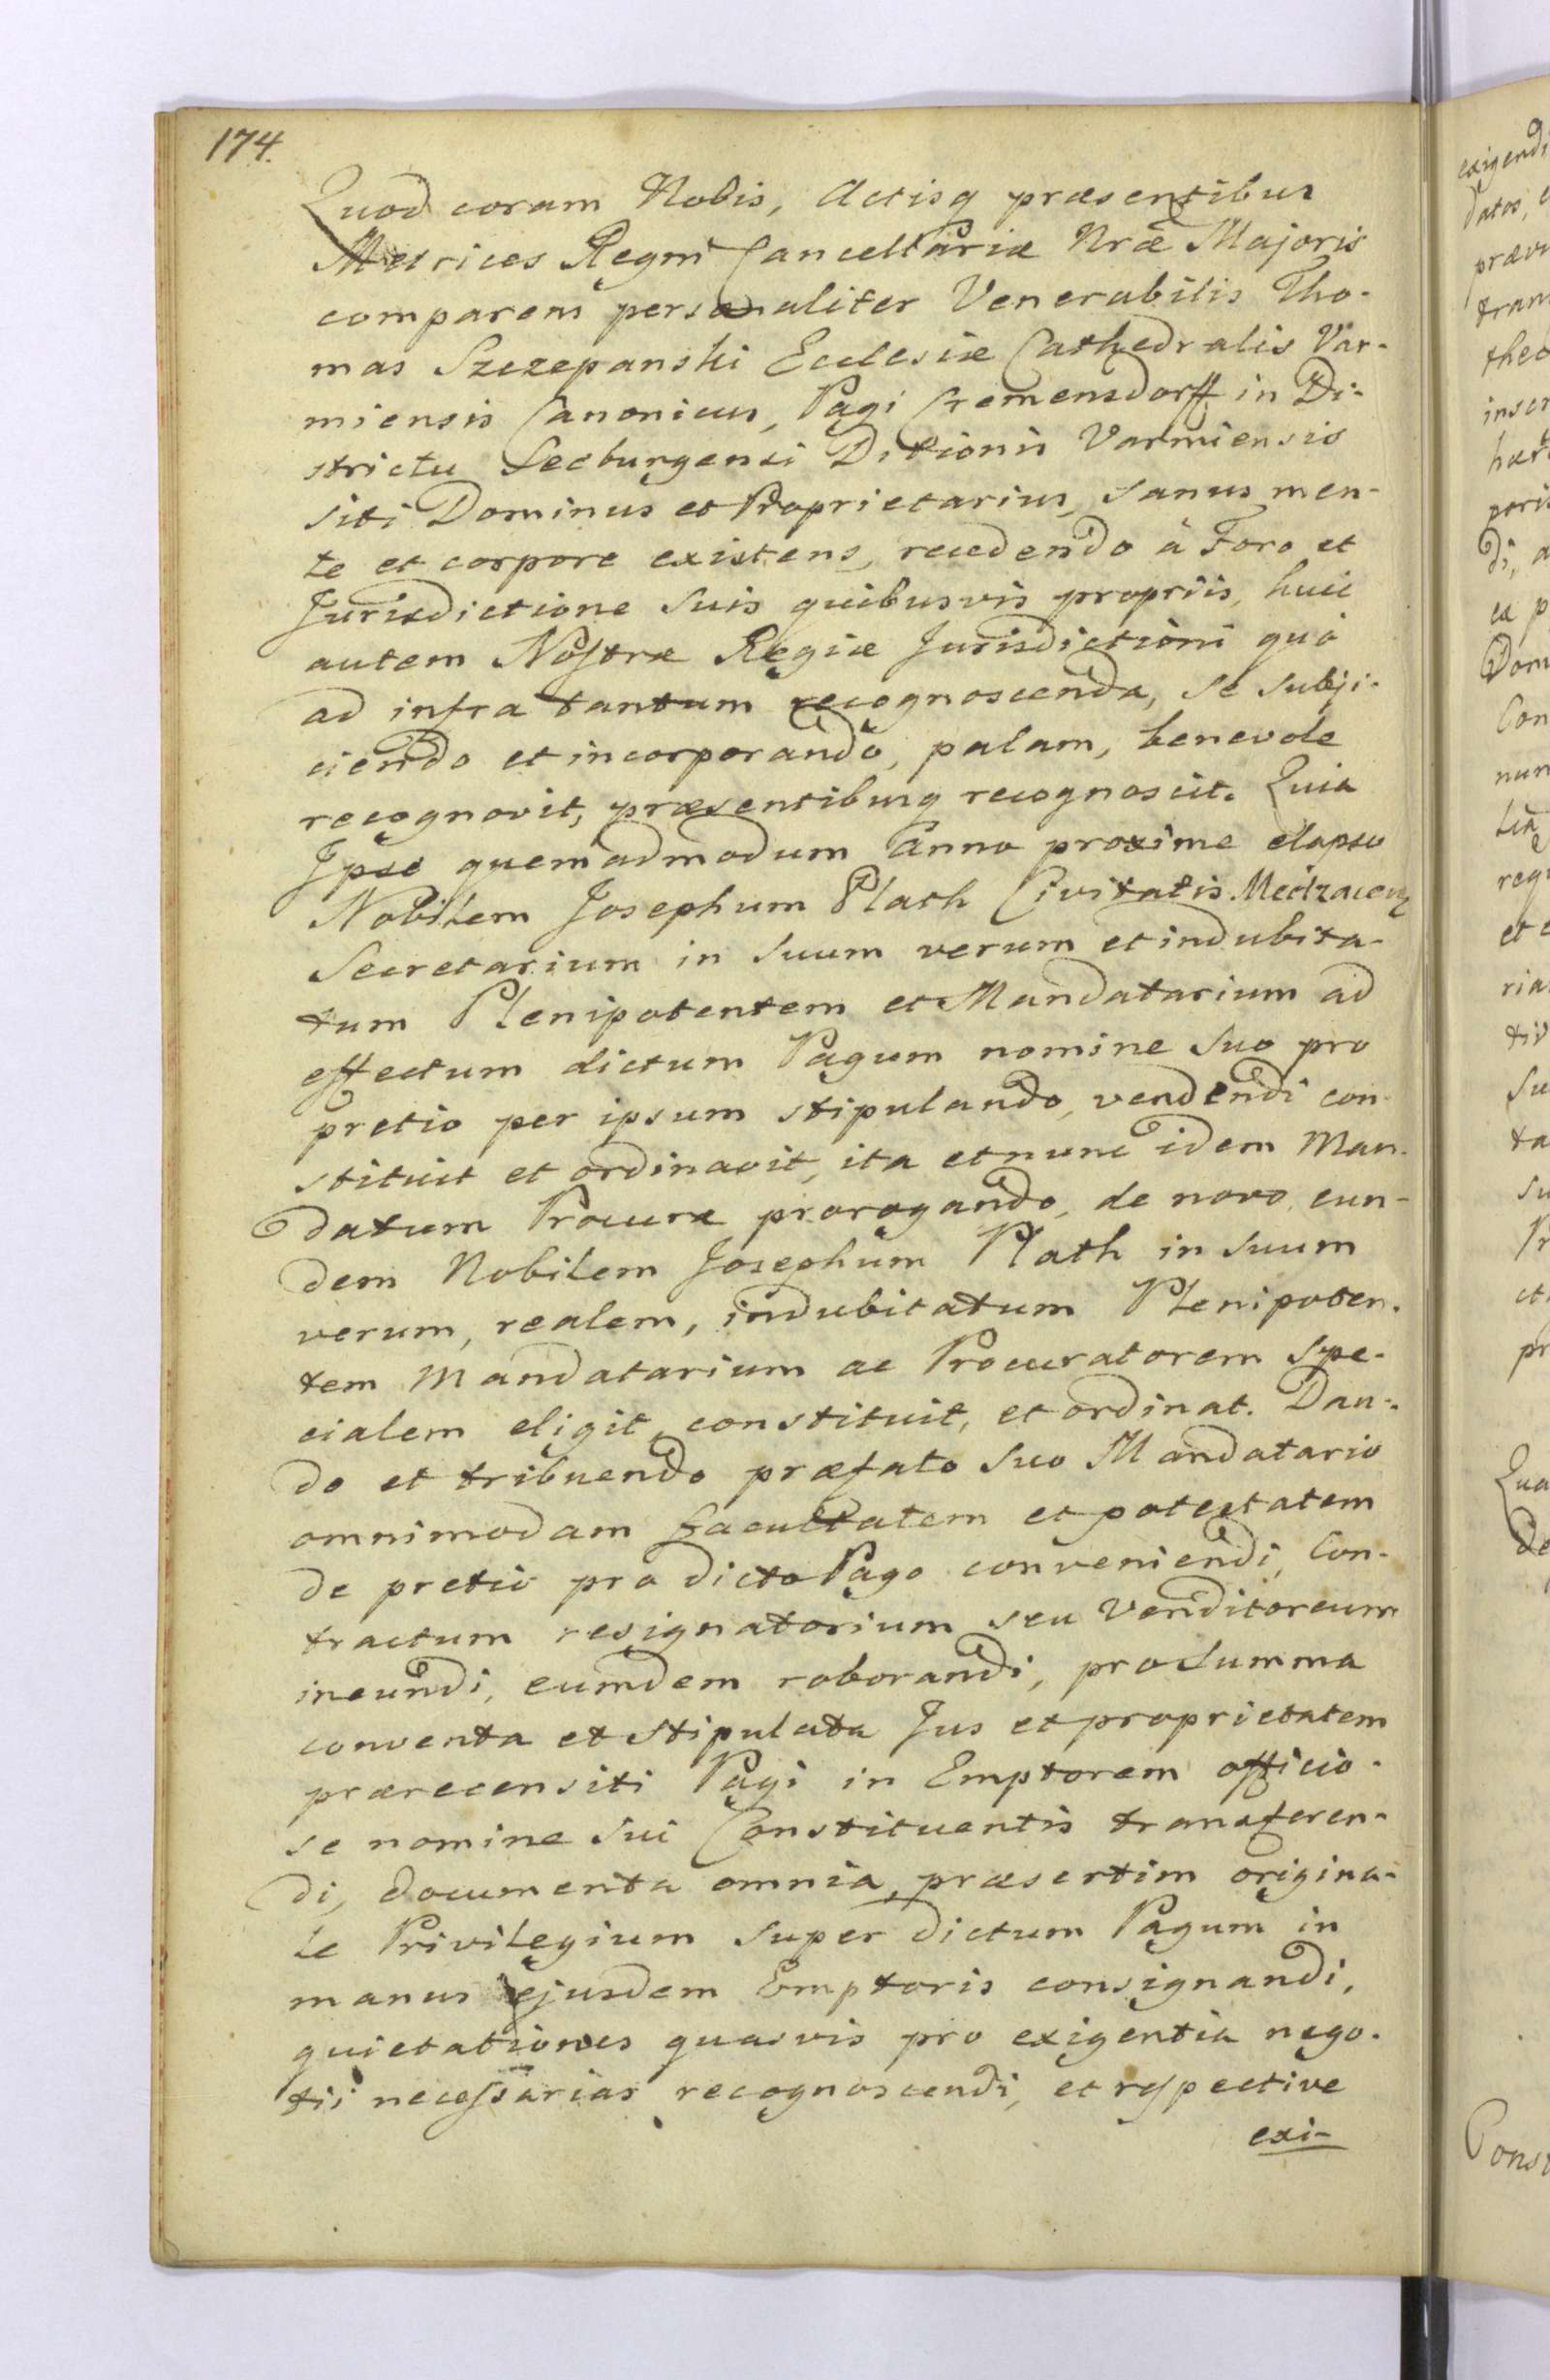 174.
Quod coram Nobis, Actisq præsentibus
Metrices Regni Cancellariæ Nræ Majoris
comparens personaliter Venerabilis Tho-
mas Szczepanski Ecclesiæ Cathedralis Var-
miensis Canonicus, Pagi Cremensdorff in Di-
strictu Seeburgensi Ditionis Varmiensis
siti Dominus et Proprietarius, sanus men-
te et corpore existens, recedendo à Foro et
Jurisdictione suis quibusvis propriis, huic
autem Nostræ Regiæ Jurisdictioni quò
ad infra tantum recognoscenda, se subji-
ciendo et incorporando, palam, benevole
recognovit, præsentibusq recognoscit. Quia
Ipse quemadmodum Anno proxime elapso
Nobilem Josephum Plath Civitatis Medzacens
Secretarium in suum verum et indubita-
tum Plenipotentem et Mandatarium ad
effectum dictum Pagum nomine suo pro
pretio per ipsum stipulando, vendendi con-
stituit et ordinavit, ita et nunc idem Man-
datum Procuræ prorogando, de novo eun-
dem Nobilem Josephum Plath in suum
verum, realem, indubitatum Plenipoten-
tem Mandatarium ac Procuratorem spe-
cialem eligit, constituit, et ordinat. Dan-
do et tribuendo præfato suo Mandatario
omnimodam facultatem et potestatem
de pretio pro dicto Pago conveniendi, Con-
tractum resignatorium seu Venditoreum
ineundi, eumdem roborandi, pro summa
conventa et stipulata Jus et proprietatem
prærecensiti Pagi in Emptorem officio-
se nomine sui Constituentis transferen-
di, documenta omnia, præsertim origina-
le Privilegium super dictum Pagum in
manus ejusdem Emptoris consignandi,
quietationes quasvis pro exigentia nego-
tii necessarias recognoscendi, et respective
exi-